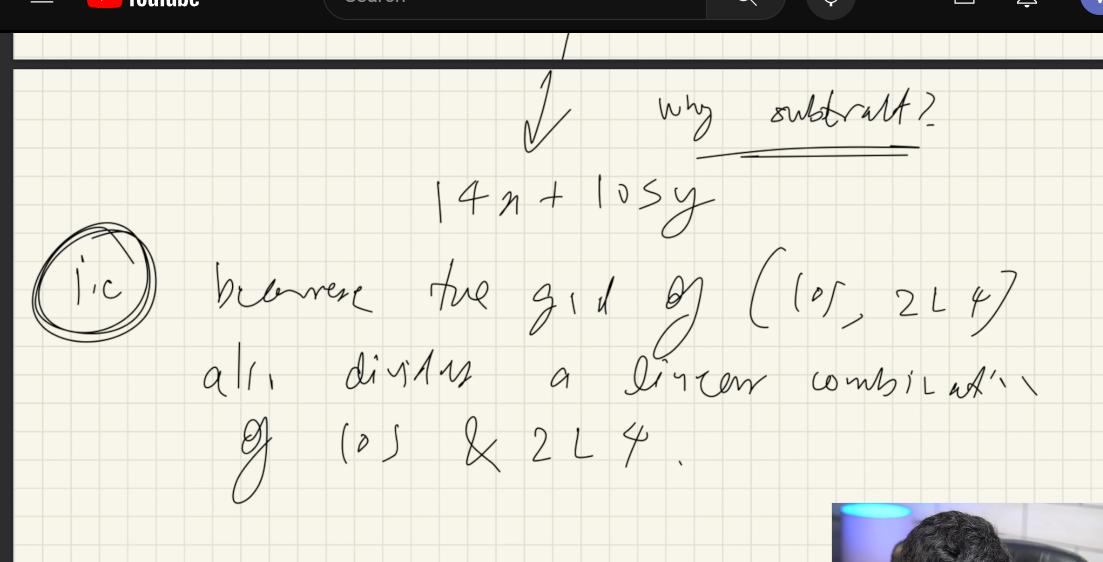 YouTube
Search
why subtract?
14x + 105y
i.e because the gcd of (105, 224)
also divides a linear combination
of 105 & 224.